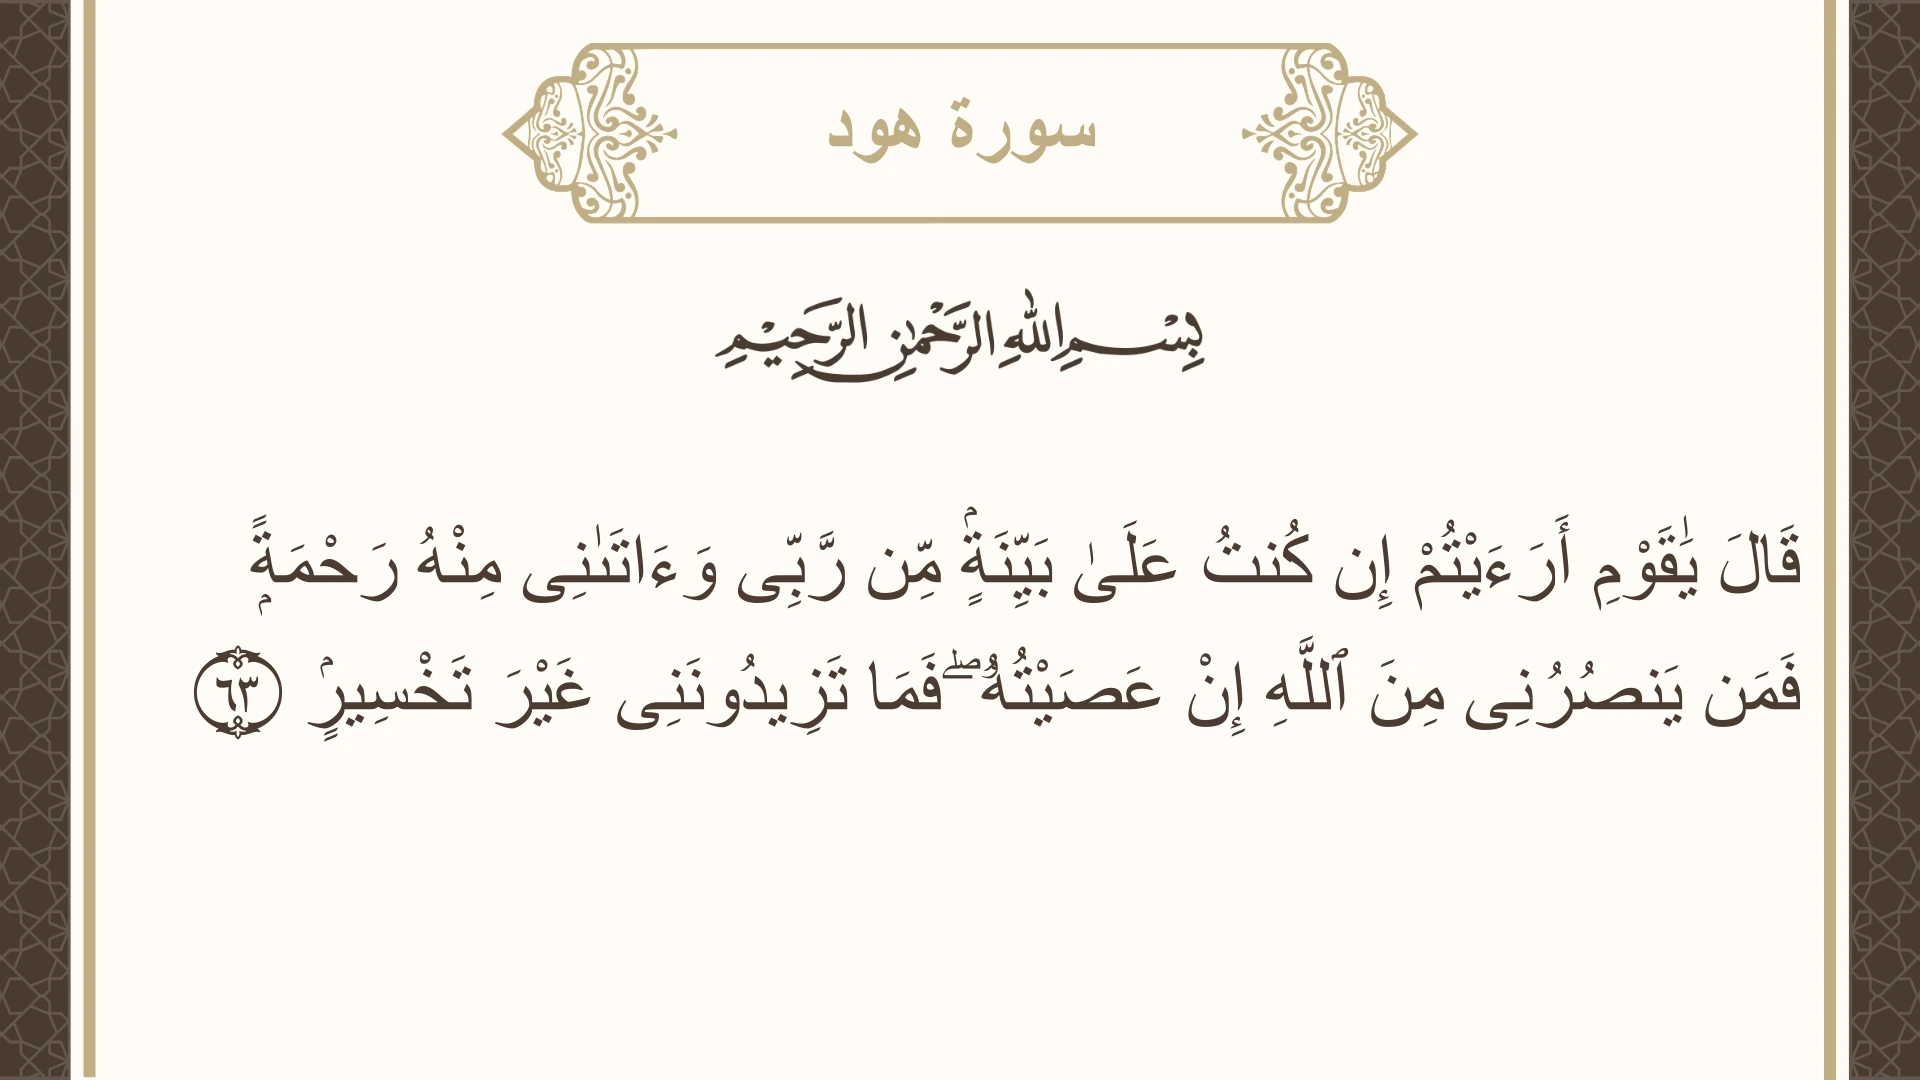 سورة هود
بِسْمِ اللهِ الرَّحْمٰنِ الرَّحِيْمِ
قَالَ يَٰقَوْمِ أَرَءَيْتُمْ إِن كُنتُ عَلَىٰ بَيِّنَةٍۢ مِّن رَّبِّى وَءَاتَىٰنِى مِنْهُ رَحْمَةًۭ
فَمَن يَنصُرُنِى مِنَ ٱللَّهِ إِنْ عَصَيْتُهُۥ ۖ فَمَا تَزِيدُونَنِى غَيْرَ تَخْسِيرٍۢ ٦٣